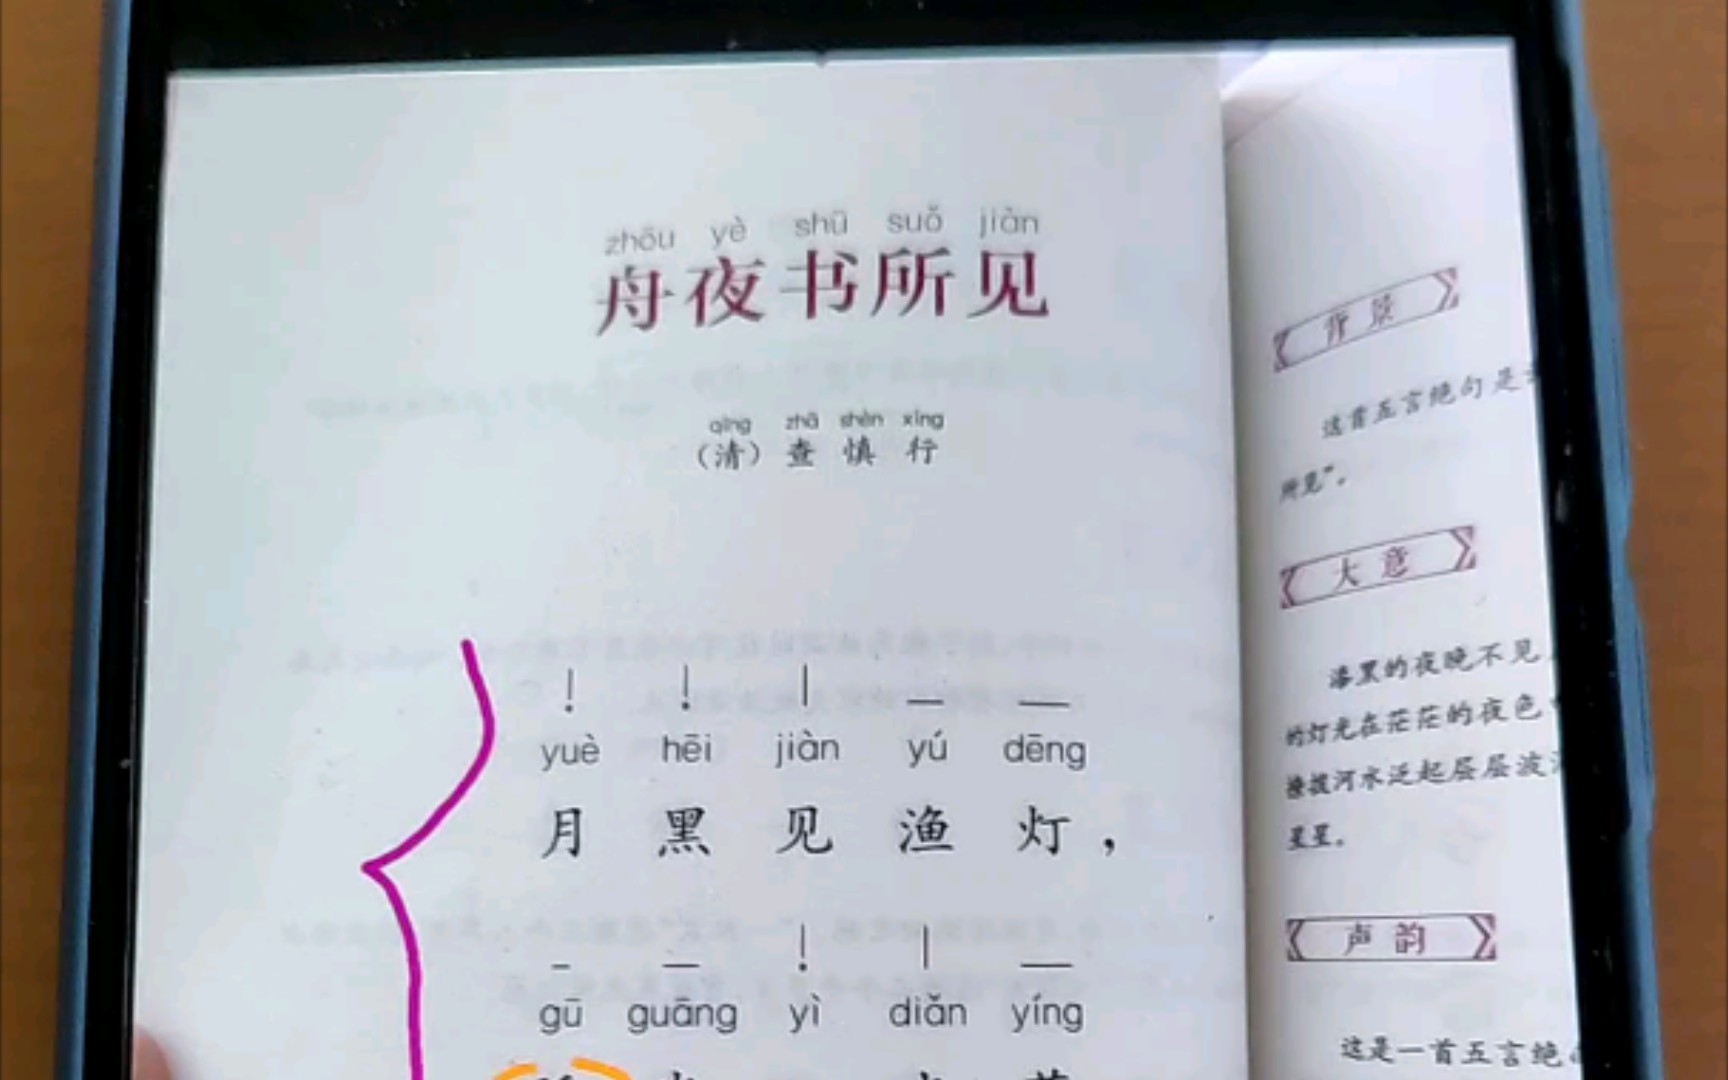 zhōu yè shū suǒ jiàn
舟夜书所见
qīng zhā shèn xíng
（清）查慎行
yuè hēi jiàn yú dēng
月黑见渔灯，
gū guāng yì diǎn yíng
背景
这首五言绝句是
所见”。
大意
漆黑的夜晚不见
的灯光在茫茫的夜色
撩拨河水泛起层层波
星星。
声韵
这是一首五言绝